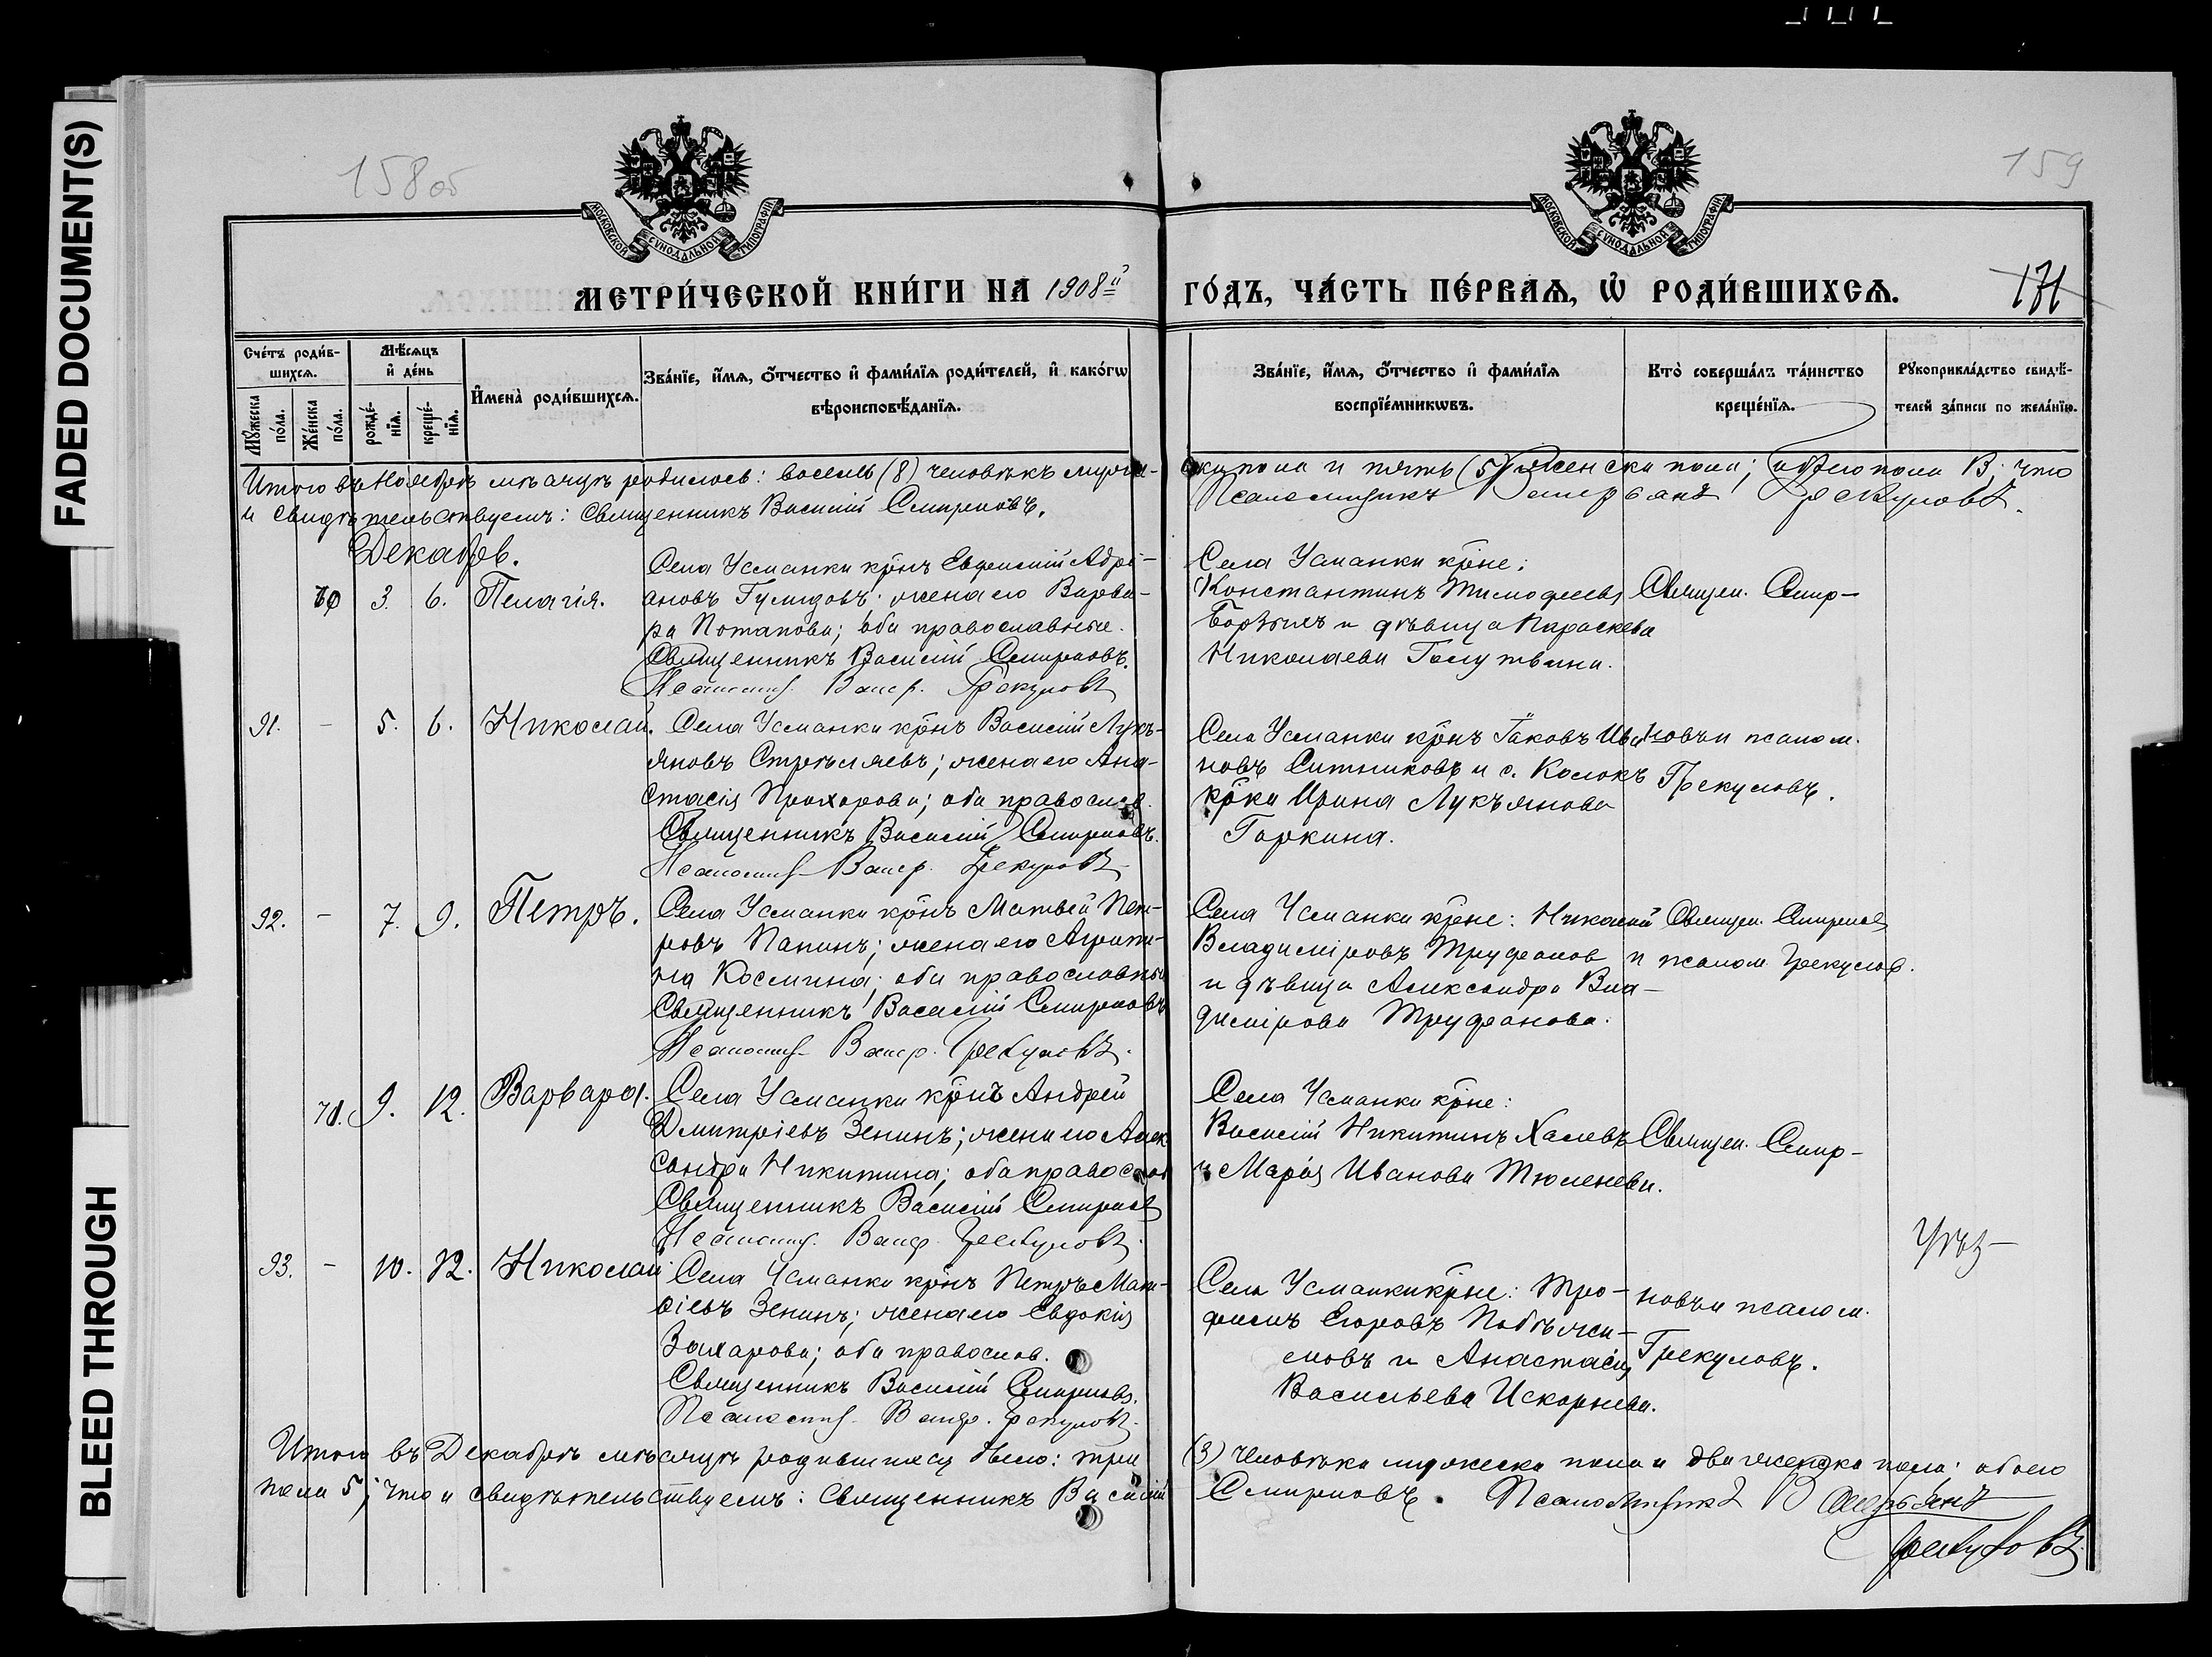 FADED DOCUMENT(S)
BLEED THROUGH
158 об
159
МОСКОВСКОЙ СѴНОДАЛЬНОЙ ТИПОГРАФІИ
МОСКОВСКОЙ СѴНОДАЛЬНОЙ ТИПОГРАФІИ
МЕТРИ́ЧЕСКОЙ КНИ́ГИ НА 1908й
ГО́ДЪ, ЧА́СТЬ ПЕ́РВАѦ, Ѡ РОДИ́ВШИХСѦ.
171
Сче́тъ роди́в-
шихсѧ.
Мꙋ́жеска по́ла.
Же́нска по́ла.
Мѣ́сѧцъ
и҆ де́нь
рожде́-
нїѧ.
креще́-
нїѧ.
И҆мена̀ роди́вшихсѧ.
Зва́нїе, и҆́мѧ, ѻ҆́тчество и҆ фами́лїѧ роди́телей, и҆ како́гѡ
вѣроисповѣ́данїѧ.
Зва́нїе, и҆́мѧ, ѻ҆́тчество и҆ фами́лїѧ
воспрїе́мникѡвъ.
Кто̀ соверша́лъ та́инство
креще́нїѧ.
Рꙋкоприкла́дство свидѣ́-
телей за́писи по жела́нїю.
Итого въ Ноябрѣ мѣсяцѣ родилось: восемь (8) человѣкъ муже-
ска пола и пять (5) женска пола; обоего пола 13; что
и свидѣтельствуемъ: Священникъ Василій Смирновъ.
Псаломщикъ Валерьянъ Грекуловъ.
Декабрь.
70 3. 6. Пелагія.
Села Усманки крнъ Евфимій Адрі-
ановъ жена его Варва-
ра Потапова; оба православные.
Священникъ Василій Смирновъ.
Псаломщ. Валер. Грекуловъ
Села Усманки крне:
Константинъ Тимофеевъ
и дѣвица Параскева
Николаева Голутвина.
Священ. Смир-
91. - 5. 6. Николай.
Села Усманки крнъ Василій Лукъ-
яновъ Стрѣляевъ; жена его Ана-
стасія Прохорова; оба православ.
Священникъ Василій Смирновъ.
Псаломщ. Валер. Грекуловъ
Села Усманки крнъ Іаковъ Ива-
новъ Ситниковъ и с. Колокъ
крка Ирина Лукъянова
Горкина.
новъ и псалом.
Грекуловъ.
92. - 7. 9. Петръ.
Села Усманки крнъ Матвей Пет-
ровъ Папинъ; жена его Агрипи-
на Космина; оба православные
Священникъ Василій Смирновъ
Псаломщ. Валер. Грекуловъ.
Села Усманки крне: Николай
Владиміровъ Труфанов
и дѣвица Александра Вла-
димірова Труфанова.
Священ. Смирнов
и псалом Грекулов.
71. 9. 12. Варвара.
Села Усманки крнъ Андрей
Дмитріевъ Зенинъ; жена его Алек
сандра Никитина; оба православ
Священникъ Василій Смирнов
Псаломщ. Валер. Грекуловъ.
Села Усманки крне:
Василій Никитинъ Халевъ
и Марія Иванова Тюленева.
Священ. Смир-
93. - 10. 12. Николай
Села Усманки крнъ Петръ
Зенинъ; жена его Евдокія
Захарова; оба православ.
Священникъ Василій Смирновъ.
Псаломщ. Валер. Грекуловъ.
Села Усманки крне: Тро-
фимъ Егоровъ Побѣжи-
мовъ и Анастасія
Васильева Искорнева.
новъ и псалом.
Грекуловъ.
Итого въ Декабрѣ мѣсяцѣ родившихся было: три
(3) человѣка мужеска пола и два женска пола; обоего
пола 5; что и свидѣтельствуемъ: Священникъ Василій
Смирновъ. Псаломщикъ Валерьянъ
Грекуловъ.